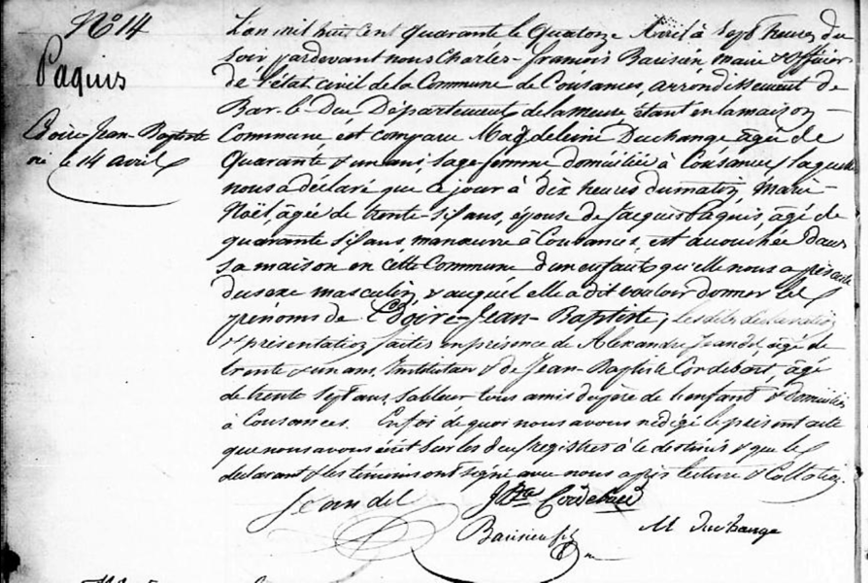 N° 14
Paquis
Jean-Baptiste
né le 14 avril
L'an mil huit cent quarante le Quatorze Avril à Sept heures du
Soir pardevant nous Charles-François maire & officier
de l'état civil de la Commune de Cousances, arrondissement de
Bar-le-Duc Département de la meuse étant en la maison
Commune est comparu Magdeleine Duchange agée de
Quarante & un ans, Sage-femme domiciliée à Cousances, laquelle
nous a déclaré que ce jour à dix heures du matin, Marie
Noël, âgée de trente-six ans, épouse de Jacques Paquis, âgé de
quarante six ans, manœuvre à Cousances, est accouchée dans
Sa maison en cette Commune d'un enfant qu'elle nous a présenté
du sexe masculin, & auquel elle a dit vouloir donner les
prénoms de Jean-Baptiste, les dites déclaration
& présentation faites en présence de Alexandre Jeandel âgé de
trente & un ans, Instituteur & de Jean-Baptiste Cordebard, âgé
de trente Sept ans, Sableur tous amis du père de l'enfant & domiciliés
à Cousances. En foi de quoi nous avons rédigé le présent acte
que nous avons écrit Sur les deux registres à le destinés & que les
déclarant & les témoins ont Signé avec nous après lecture & Collation.
Jeandel
JBte Cordebard
M Duchange